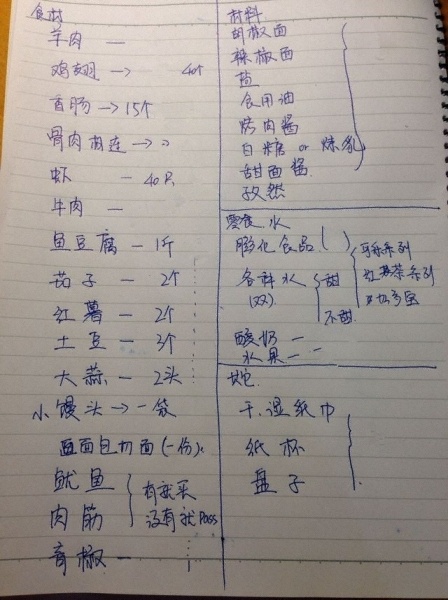 食材
羊肉 —
鸡翅 —> 40个
香肠 —> 15个
骨肉相连 —>
虾 — 40只
牛肉 —
鱼豆腐 — 1斤
茄子 — 2个
红薯 — 2个
土豆 — 3个
大蒜 — 2头
小馒头 —> 一袋
面包切面(一份)
鱿鱼
肉筋
有就买
没有就pass
青椒 —
材料
胡椒面
辣椒面
盐
食用油
烤肉酱
白糖 or 炼乳
甜面酱
孜然
零食、水
膨化食品( )
各种水
甜
系列
红茶系列
不甜
酸奶 —
水果 —
其它
干、湿纸巾
纸杯
盘子